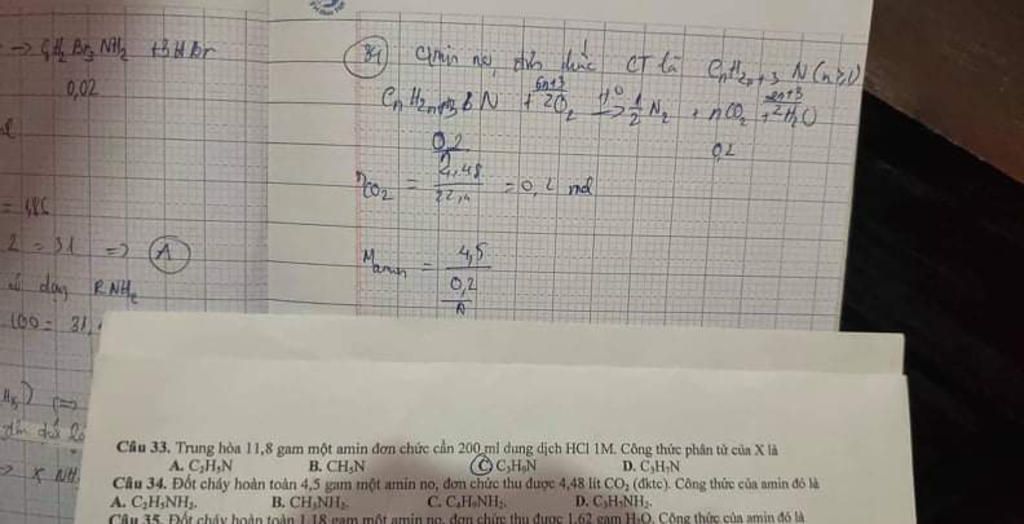 → C₆H₂Br₃NH₂ + 3HBr
0,02
2 = 31 ⇒ A
dạng RNH₂
100 = 31,
34 Amin no, đơn chức CT là CₙH₂ₙ₊₃N (n≥1)
CₙH₂ₙ₊₃N + (6n+3)/2 O₂ →(t⁰) 1/2 N₂ + nCO₂ + (2n+3)/2 H₂O
0,2/n 0,2
nCO₂ = 4,48/22,4 = 0,2 mol
Mamin = 4,5/(0,2/n)
Câu 33. Trung hòa 11,8 gam một amin đơn chức cần 200 ml dung dịch HCl 1M. Công thức phân tử của X là
A. C₂H₅N B. CH₅N C. C₃H₉N D. C₃H₇N
Câu 34. Đốt cháy hoàn toàn 4,5 gam một amin no, đơn chức thu được 4,48 lít CO₂ (đktc). Công thức của amin đó là
A. C₂H₅NH₂. B. CH₃NH₂. C. C₄H₉NH₂. D. C₃H₇NH₂.
Câu 35. Đốt cháy hoàn toàn 1,18 gam một amin no, đơn chức thu được 1,62 gam H₂O. Công thức của amin đó là